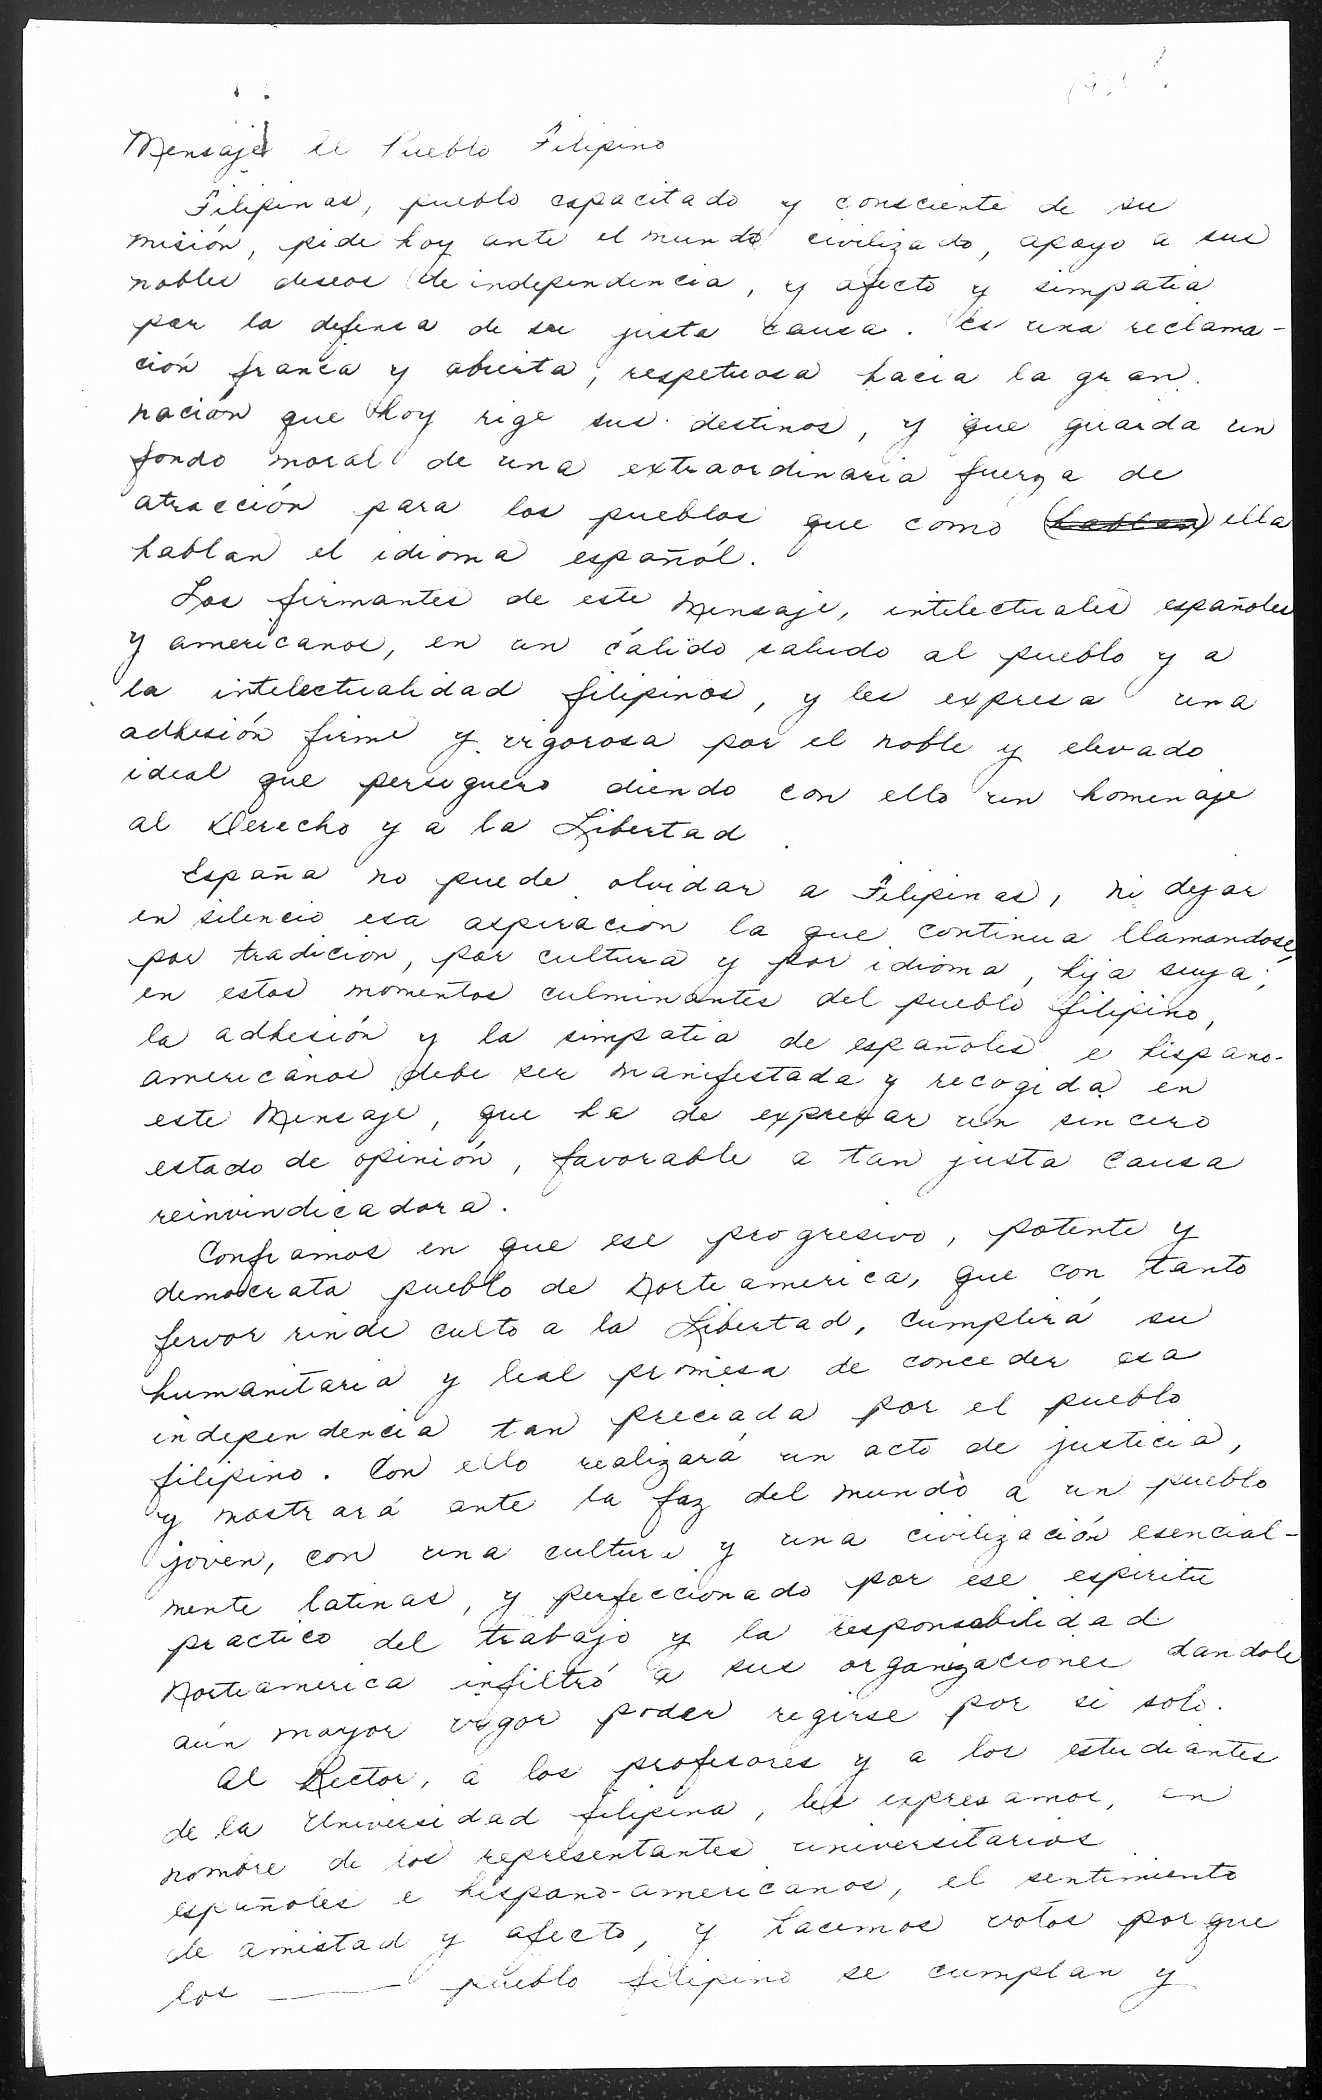 Mensaje al Pueblo Filipino
Filipinas, pueblo capacitado y consciente de su
misión, pide hoy ante el mundo civilizado, apoyo a sus
nobles deseos de independencia, y afecto y simpatia
por la defensa de su justa causa. Es una reclama-
ción franca y abierta, respetuosa hacia la gran
nación que hoy rige sus destinos, y que guarda un
fondo moral de una extraordinaria fuerza de
atracción para los pueblos que como (hablan) ella
hablan el idioma español.
Los firmantes de este Mensaje, intelectuales españoles
y americanos, en un cálido saludo al pueblo y a
la intelectualidad filipinos, y les expresa una
adhesión firme y vigorosa por el noble y elevado
ideal que persiguero diendo con ello un homenaje
al Derecho y a la Libertad
España no puede olvidar a Filipinas, ni dejar
en silencio esa aspiracion la que continua llamandose,
por tradicion, por cultura y por idioma, hija suya;
en estos momentos culminantes del pueblo filipino,
la adhesión y la simpatia de españoles e hispano-
americanos debe ser manifestada y recogida en
este Mensaje, que ha de expresar un sincero
estado de opinión, favorable a tan justa causa
reinvindicadora.
Confiamos en que ese progresivo, potente y
democrata pueblo de Norte america, que con tanto
fervor rinde culto a la Libertad, cumplirá su
humanitaria y leal promesa de conceder esa
independencia tan preciada por el pueblo
filipino. Con ello realizará un acto de justicia,
y mostrará ante la faz del mundo a un pueblo
joven, con una cultura y una civilización esencial-
mente latinas, y perfeccionado por ese espiritu
practico del trabajo y la responsabilidad
Norteamerica infiltró a sus organizaciones dandole
aún mayor vigor poder regirse por si solo.
Al Rector, a los profesores y a los estudiantes
de la Universidad filipina, les expresamos, en
nombre de los representantes universitarios
españoles e hispano-americanos, el sentimiento
de amistad y afecto, y hacemos votos porque
los ——— pueblo filipino se cumplan y